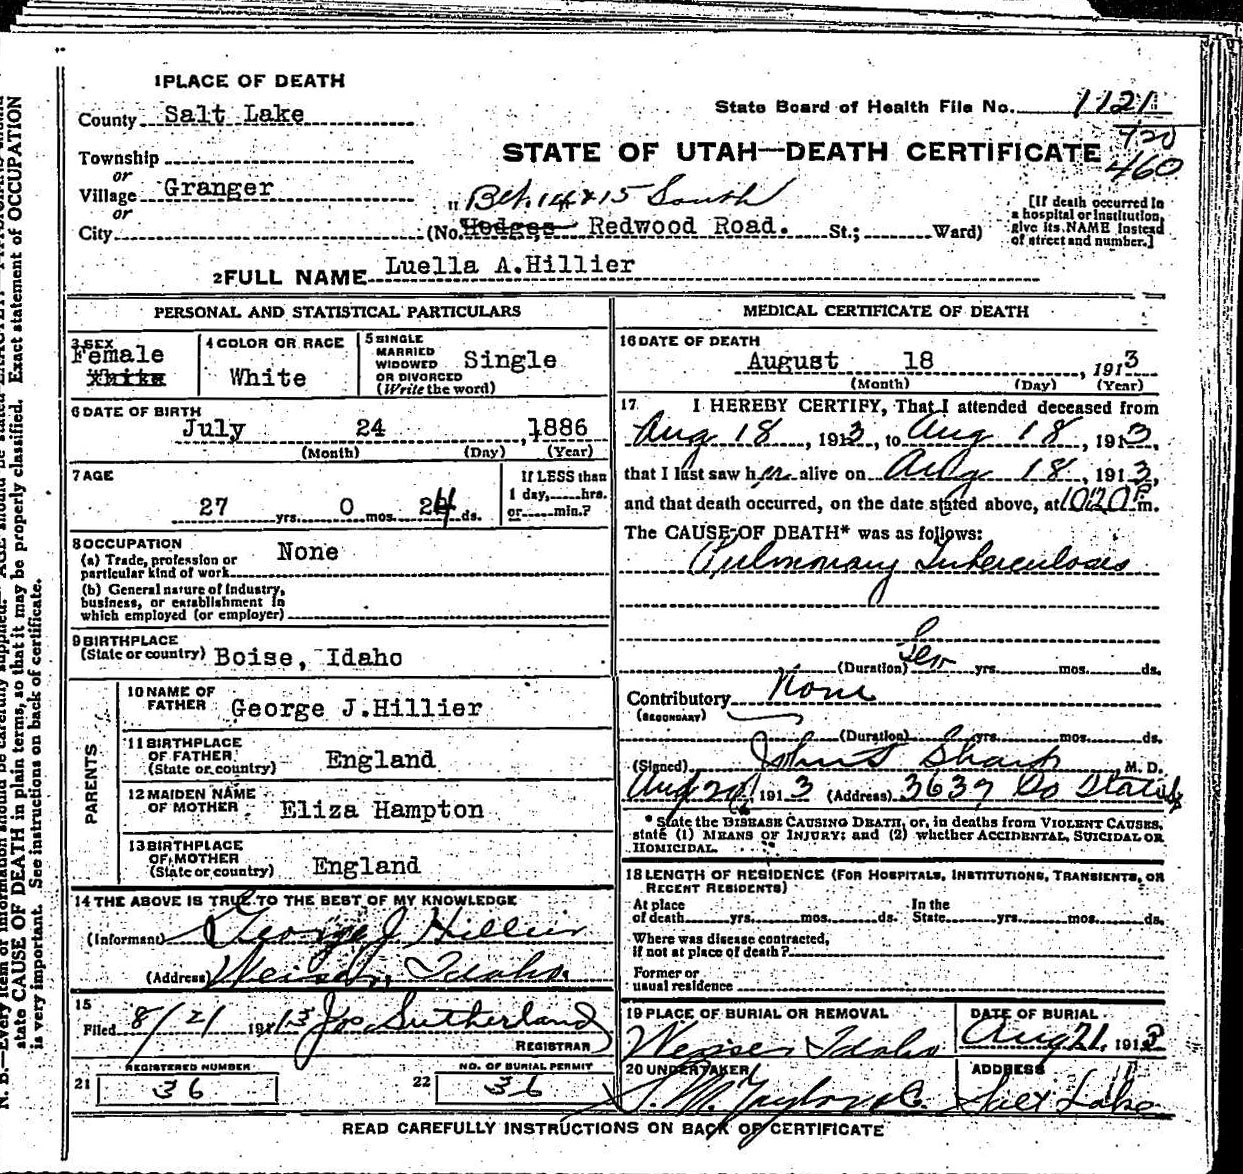 1 PLACE OF DEATH
County Salt Lake
State Board of Health File No. 1121
720
460
Township
or
Village Granger
or
STATE OF UTAH—DEATH CERTIFICATE
" Bet. 14 & 15 South
City (No. Hodges Redwood Road. St.; Ward)
[If death occurred in
a hospital or institution,
give its NAME instead
of street and number.]
2 FULL NAME Luella A.Hillier
PERSONAL AND STATISTICAL PARTICULARS
3 SEX
Female
White
4 COLOR OR RACE
White
5 SINGLE
MARRIED
WIDOWED
OR DIVORCED
(Write the word)
Single
6 DATE OF BIRTH
July 24, 1886
(Month) (Day) (Year)
7 AGE
27 yrs. 0 mos. 24 ds.
If LESS than
1 day, hrs.
or min.?
8 OCCUPATION
(a) Trade, profession or
particular kind of work
None
(b) General nature of industry,
business, or establishment in
which employed (or employer)
9 BIRTHPLACE
(State or country) Boise, Idaho
PARENTS
10 NAME OF
FATHER George J.Hillier
11 BIRTHPLACE
OF FATHER
(State or country) England
12 MAIDEN NAME
OF MOTHER Eliza Hampton
13 BIRTHPLACE
OF MOTHER
(State or country) England
14 THE ABOVE IS TRUE TO THE BEST OF MY KNOWLEDGE
(Informant) George J. Hillier
(Address) Weiser, Idaho.
15
Filed 8/21 1913 Jos Sutherland
REGISTRAR
21 REGISTERED NUMBER
36
22 NO. OF BURIAL PERMIT
36
MEDICAL CERTIFICATE OF DEATH
16 DATE OF DEATH
August 18, 1913
(Month) (Day) (Year)
17 I HEREBY CERTIFY, That I attended deceased from
Aug 18, 1913, to Aug 18, 1913,
that I last saw her alive on Aug 18, 1913,
and that death occurred, on the date stated above, at 10:20 P m.
The CAUSE OF DEATH* was as follows:
Pulmonary Tuberculosis
(Duration) yrs. mos. ds.
Contributory None
(SECONDARY)
(Duration) yrs. mos. ds.
(Signed) John T Sharp M. D.
Aug 20, 1913 (Address) 3637 So State
* State the DISEASE CAUSING DEATH, or, in deaths from VIOLENT CAUSES,
state (1) MEANS OF INJURY; and (2) whether ACCIDENTAL, SUICIDAL OR
HOMICIDAL.
18 LENGTH OF RESIDENCE (FOR HOSPITALS, INSTITUTIONS, TRANSIENTS, OR
RECENT RESIDENTS)
At place
of death yrs. mos. ds.
In the
State yrs. mos. ds.
Where was disease contracted,
if not at place of death?
Former or
usual residence
19 PLACE OF BURIAL OR REMOVAL
Weiser Idaho
DATE OF BURIAL
Aug 21, 1913
20 UNDERTAKER
S. M. Taylor & Co.
ADDRESS
Salt Lake
READ CAREFULLY INSTRUCTIONS ON BACK OF CERTIFICATE
N. B.—Every item of information should be carefully supplied. AGE should be stated EXACTLY.
state CAUSE OF DEATH in plain terms, so that it may be properly classified. Exact statement of OCCUPATION
is very important. See instructions on back of certificate.